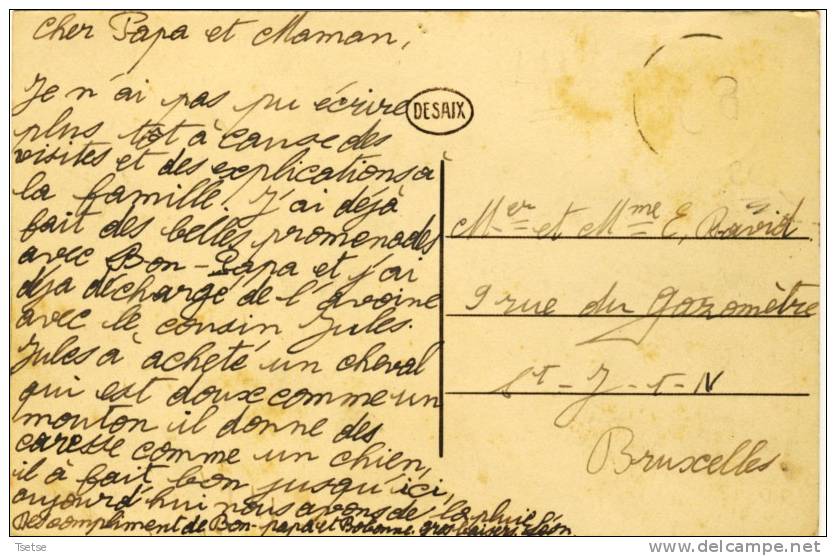 Cher Papa et Maman,
Je n'ai pas pu écrire
plus tôt à cause des
visites et des explications à
la famille. J'ai déjà
fait des belles promenades
avec Bon-Papa et j'ai
déja déchargé de l'avoine
avec le cousin Jules.
Jules à acheté un cheval
qui est doux comme un
mouton il donne des
caresse comme un chien,
il à fait bon jusqu'ici,
aujourd'hui nous avons de la pluie
Des compliment de Bon-papa et Bobonne. gros baisers. Léon.
DESAIX
Mer et Mme E. David
9 rue du gazomètre
St-J-t-N
Bruxelles.
Tsetse
delcampe.net